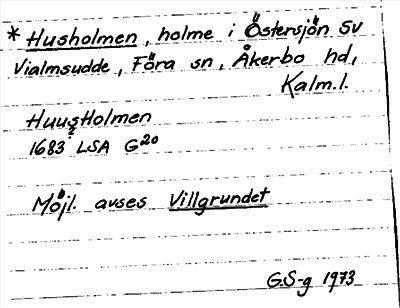 * Husholmen, holme i Östersjön SV
Vialmsudde, Föra sn, Åkerbo hd,
Kalm.l.
HuusHolmen
1683 LSA G20
Möjl. avses Villgrundet
G.S-g 1973